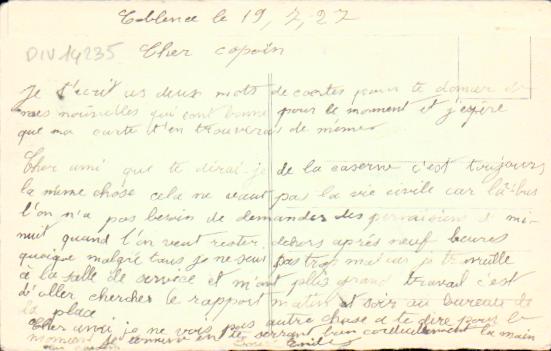 Coblence le 19, 7, 27
DIV 14235
Cher copain
Je t'écrit ces deux mots de cartes pour te donner de
mes nouvelles qui sont bonne pour le moment et j'espère
que ma carte t'en trouveras de même
Cher ami que te dirai-je de la caserne c'est toujours
la même chose cela ne vaut pas la vie civile car là-bas
l'on n'a pas besoin de demander des permissions de mi-
nuit quand l'on veut rester dehors après neuf heures
quoique malgré tous je ne suis pas trop mal car je travaille
à la salle de service et m'ont plus grand travail c'est
d'aller chercher le rapport matin et soir au bureau de
la place
Cher ami je ne vois pas autre chose a te dire pour le
moment je termine en te serrant bien cordialement la main
ton copain Emile